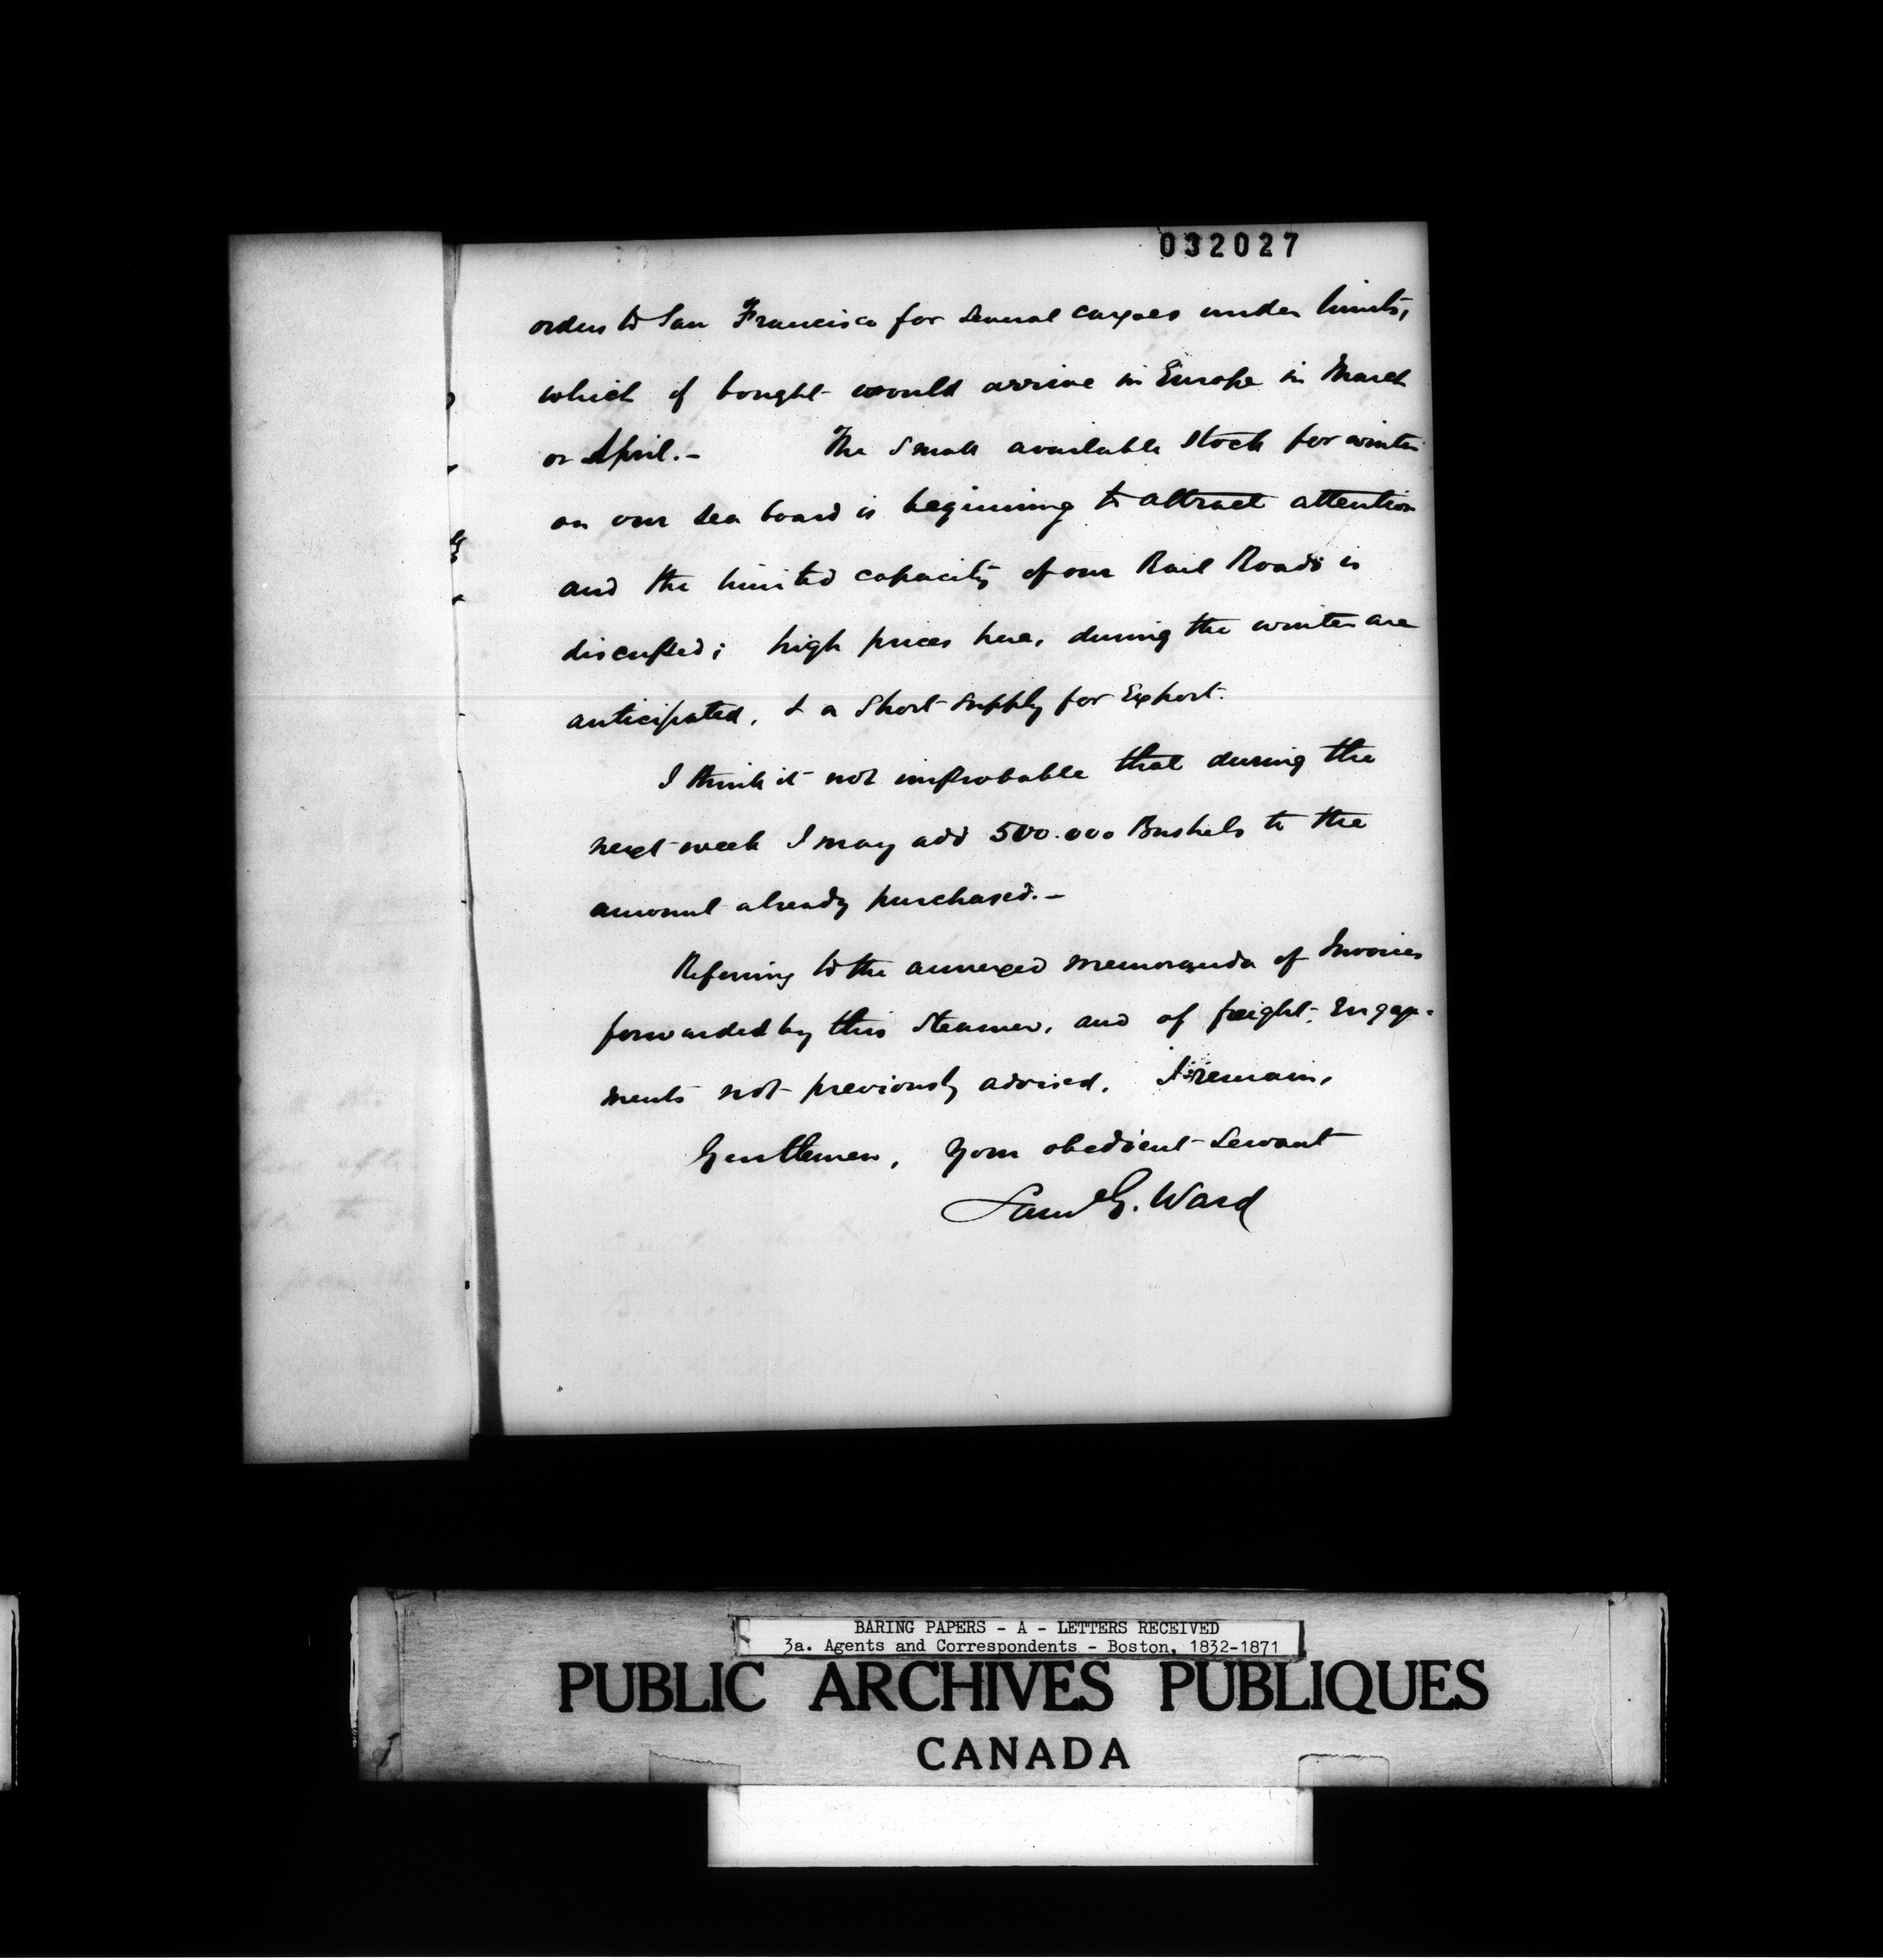 032027
orders to San Francisco for several cargoes under limits,
which if bought would arrive in Europe in March
or April.- The small available stock for winter
on our sea board is beginning to attract attention
and the limited capacity of our Rail Roads is
discussed; high prices here, during the winter are
anticipated, & a short supply for Export.
I think it not improbable that during the
next week I may add 500.000 Bushels to the
amount already purchased.-
Referring to the annexed memoranda of Invoices
forwarded by this Steamer, and of freight Engage-
ments not previously advised, I remain,
Gentlemen, Your obedient Servant
Saml G. Ward
BARING PAPERS - A - LETTERS RECEIVED
3a. Agents and Correspondents - Boston, 1832-1871
PUBLIC ARCHIVES PUBLIQUES
CANADA